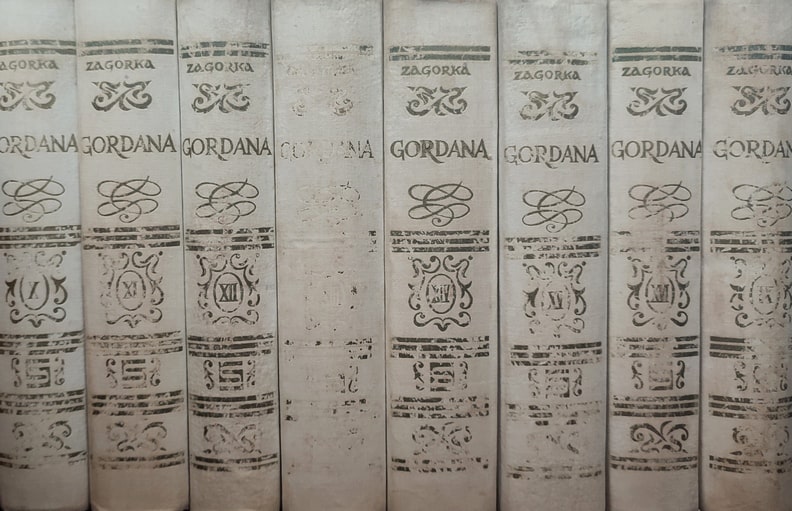 ZAGORKA
GORDANA
X
ZAGORKA
GORDANA
XI
ZAGORKA
GORDANA
XII
GORDANA
ZAGORKA
GORDANA
XIV
ZAGORKA
GORDANA
XV
ZAGORKA
GORDANA
ZAGORKA
GORDANA